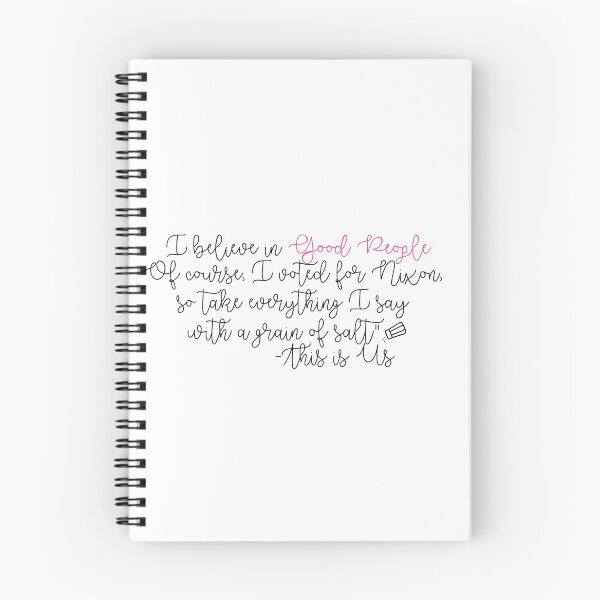 I believe in Good People.
Of course, I voted for Nixon,
so take everything I say
with a grain of salt"
-This is Us